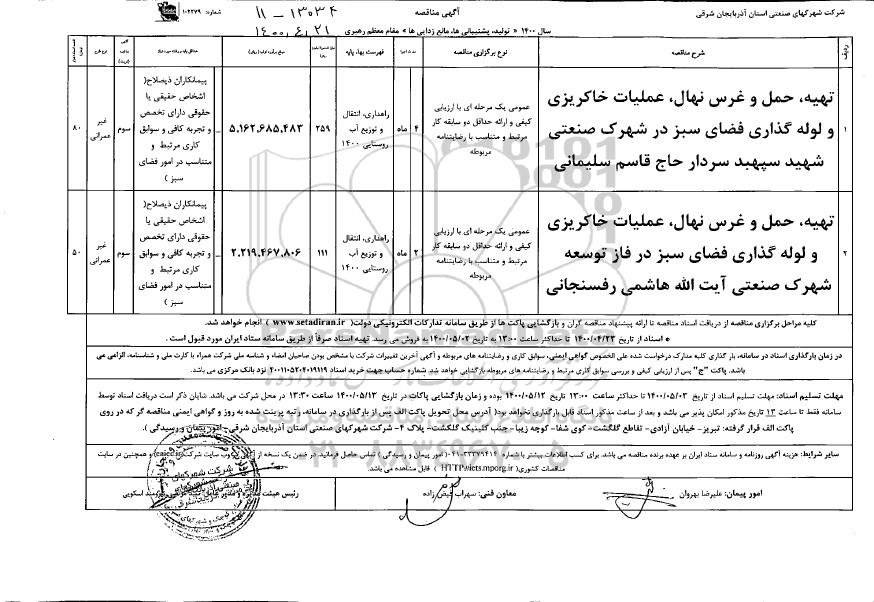 شرکت شهرکهای صنعتی استان آذربایجان شرقی
آگهی مناقصه
۱۳۰۳۴ - ۱۱
شماره: ۱۰۲۲۷۹
سال ۱۴۰۰ « تولید، پشتیبانی ها، مانع زدایی ها » مقام معظم رهبری
۱۴۰۰،۴،۲۱
ردیف
شرح مناقصه
نوع برگزاری مناقصه
فهرست بهاء پایه
۱
تهیه، حمل و غرس نهال، عملیات خاکریزی
و لوله گذاری فضای سبز در شهرک صنعتی
شهید سپهبد سردار حاج قاسم سلیمانی
عمومی یک مرحله ای با ارزیابی
کیفی و ارائه حداقل دو سابقه کار
مرتبط و متناسب با رضایتنامه
مربوطه
۴ ماه
راهداری، انتقال
و توزیع آب
روستایی ۱۴۰۰
۲۵۹
۵,۱۶۲,۶۸۵,۴۸۳
پیمانکاران ذیصلاح(
اشخاص حقیقی یا
حقوقی دارای تخصص
و تجربه کافی و سوابق
کاری مرتبط و
متناسب در امور فضای
سبز )
سوم
غیر
عمرانی
۸۰
۲
تهیه، حمل و غرس نهال، عملیات خاکریزی
و لوله گذاری فضای سبز در فاز توسعه
شهرک صنعتی آیت الله هاشمی رفسنجانی
عمومی یک مرحله ای با ارزیابی
کیفی و ارائه حداقل دو سابقه کار
مرتبط و متناسب با رضایتنامه
مربوطه
۲ ماه
راهداری، انتقال
و توزیع آب
روستایی ۱۴۰۰
۱۱۱
۲,۲۱۹,۴۶۷,۸۰۶
پیمانکاران ذیصلاح(
اشخاص حقیقی یا
حقوقی دارای تخصص
و تجربه کافی و سوابق
کاری مرتبط و
متناسب در امور فضای
سبز )
سوم
غیر
عمرانی
۵۰
کلیه مراحل برگزاری مناقصه از دریافت اسناد مناقصه تا ارائه پیشنهاد مناقصه گران و بازگشایی پاکت ها از طریق سامانه تدارکات الکترونیکی دولت( www.setadiran.ir ) انجام خواهد شد.
* اسناد از تاریخ ۱۴۰۰/۰۴/۲۳ تا حداکثر ساعت ۱۳:۰۰ به تاریخ ۱۴۰۰/۰۵/۰۲ به فروش می رسد. تهیه اسناد صرفاً از طریق سامانه ستاد ایران مورد قبول است .
در زمان بارگذاری اسناد در سامانه، بار گذاری کلیه مدارک درخواست شده علی الخصوص گواهی ایمنی، سوابق کاری و رضایتنامه های مربوطه و آگهی آخرین تغییرات شرکت با مشخص بودن صاحبان امضاء و شناسه ملی شرکت همراه با کارت ملی و شناسنامه، الزامی می
باشد. پاکت "ج" پس از ارزیابی کیفی و بررسی سوابق کاری مرتبط و رضایتنامه های مربوطه بازگشایی خواهد شد. شماره حساب جهت خرید اسناد ۲۰۰۱۱۰۵۲۰۴۰۱۹۱۱۹ نزد بانک مرکزی می باشد.
مهلت تسلیم اسناد: مهلت تسلیم اسناد از تاریخ ۱۴۰۰/۰۵/۰۳ تا حداکثر ساعت ۱۳:۰۰ تاریخ ۱۴۰۰/۰۵/۱۲ بوده و زمان بازگشایی پاکات در تاریخ ۱۴۰۰/۰۵/۱۳ ساعت ۱۳:۳۰ در محل شرکت می باشد. شایان ذکر است دریافت اسناد توسط
سامانه فقط تا ساعت ۱۳ تاریخ مذکور امکان پذیر می باشد و بعد از ساعت مذکور اسناد قابل بارگذاری نخواهد بود( آدرس محل تحویل پاکت الف پس از بارگذاری در سامانه، رتبه پرینت شده به روز و گواهی ایمنی مناقصه گر که در روی
پاکت الف قرار گرفته: تبریز- خیابان آزادی- تقاطع گلگشت- کوی شفا- کوچه زیبا- جنب کلینیک گلگشت- پلاک ۴- شرکت شهرکهای صنعتی استان آذربایجان شرقی- امور پیمان و رسیدگی ).
سایر شرایط: هزینه آگهی روزنامه و سامانه ستاد ایران بر عهده برنده مناقصه می باشد. برای کسب اطلاعات بیشتر با شماره (امور پیمان و رسیدگی ) تماس حاصل فرمائید. در ضمن یک نسخه از آگهی در وب سایت شرکت و همچنین در سایت
مناقصات کشوری( HTTP\iets.mporg.ir ) قابل مشاهده می باشد.
امور پیمان: علیرضا بهروان
معاون فنی: سهراب فیض زاده
ParsNamadData
۰۲۱-۸۸۳۴۹۶۷۰-۵